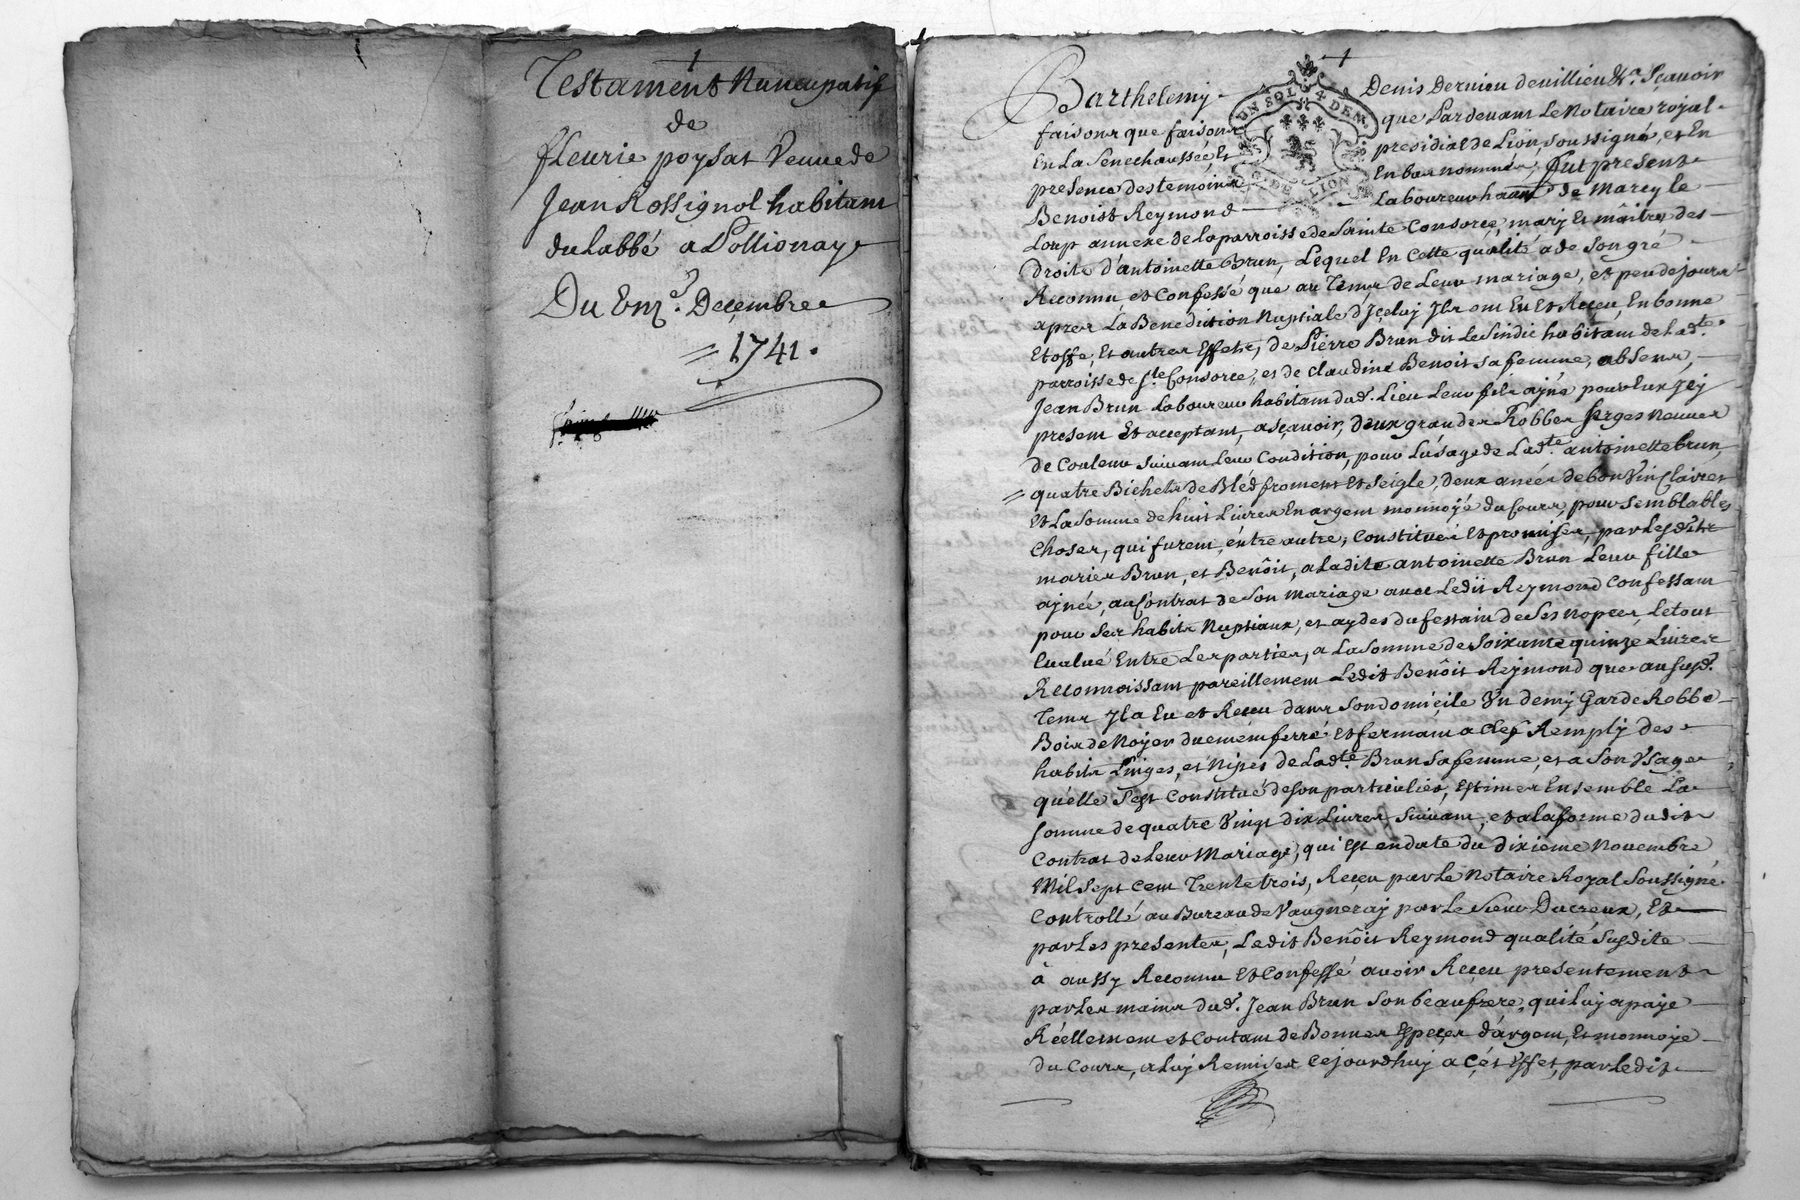 Testament Nuncupatif
de
fleurie poysat Veuve de
Jean Rossignol habitant
du Labbé a Pollionay
Du Onz.e Decembre
= 1741.
Barthelemy Denis Dervieu de villieu &.a Sçavoir
faisons que faisons que Pardevant Le Notaire royal
En La Senechaussée, Et presidial de Lion soussigné, et En
presence des temoins En bas nommés, fut present
Benoist Reymond Laboureur haant de Marcy le
Loup annexe de la parroisse de Sainte Consorce, mary Et maître des
droits d'antoinette Brun, Lequel En Cette qualité a de Son gré
Reconnu et Confessé que au Tems de Leur mariage, et peu de jours
apres La Benediction Nuptiale d'Iceluy Il a Eu Et Receu, En bonne
Etoffe, Et autres Effets, de Pierre Brun dit Le Sindic habitant de Lad.te
parroisse de S.te Consorce, et de Claudine Benoit sa femme, absens,
Jean Brun Laboureur habitant dud. Lieu Leur fils aîné pour Eux Icy
present Et acceptant, a sçavoir, Deux grandes Robbes serges neuves
de Couleur Suivant Leur Condition, pour L'usage de Lad.te antoinette brun,
= quatre Bichets de Bled froment Et seigle, deux anées de bon Vin Clairet
Et La Somme de huit Livres En argent monnoyé du Cours, pour Semblables
Choses, qui furent, entre autre, Constituées Et promises, par Lesdits
mariés Brun, et Benôit, a Ladite antoinette Brun Leur fille
ainée, au Contrat de Son mariage avec Ledit Reymond Confessant
pour Ses habits Nuptiaux, et aydes du festain de Ses Nopces, Le tout
Evalué Entre Les parties, a La Somme de Soixante quinze Livres
Reconnoissant pareillement Ledit Benôit Reymond que au Susd.
Tems Il a Eu et Receu dans Son domicile Un demy Garde Robbe
Bois de Noyer duement ferré Et fermant a Clef Remply des
habits Linges, et Nipes de Lad.te Brun Sa femme, et a Son Usage
qu'elle S'est Constitué de Son particulier, Estimés Ensemble La
Somme de quatre Vingt dix Livres Suivant, et a la forme dudit
Contrat de Leur Mariage, qui Est en date du dixieme Novembre
Mil Sept Cent Trente trois, Receu par Le Notaire Royal Soussigné
Controllé au Bureau de Vaugneray par Le Sieur Ducreux, Et
par Les presentes, Ledit Benôit Reymond qualité Susdite
à aussy Reconnu Et Confessé avoir Receu presentement
par Les mains dud. Jean Brun Son beau frere, qui Luy a payé
Réellement et Contant de Bonnes Especes d'argent, Et monnoye
du Cours, a Luy Remises Cejourdhuy a Cét Effet, par Ledit